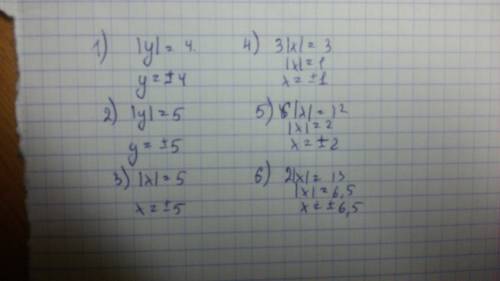 1) |y| = 4.
y = ±4
2) |y| = 5
y = ±5
3) |x| = 5
x = ±5
4) 3|x| = 3
|x| = 1
x = ±1
5) 6|x| = 12
|x| = 2
x = ±2
6) 2|x| = 13
|x| = 6,5
x = ±6,5